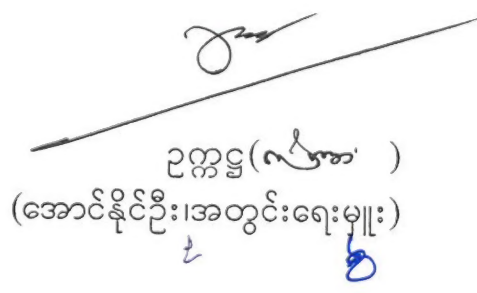 ဥက္ကဋ္ဌ(ကိုယ်စား)
(အောင်နိုင်ဦး၊အတွင်းရေးမှူး)